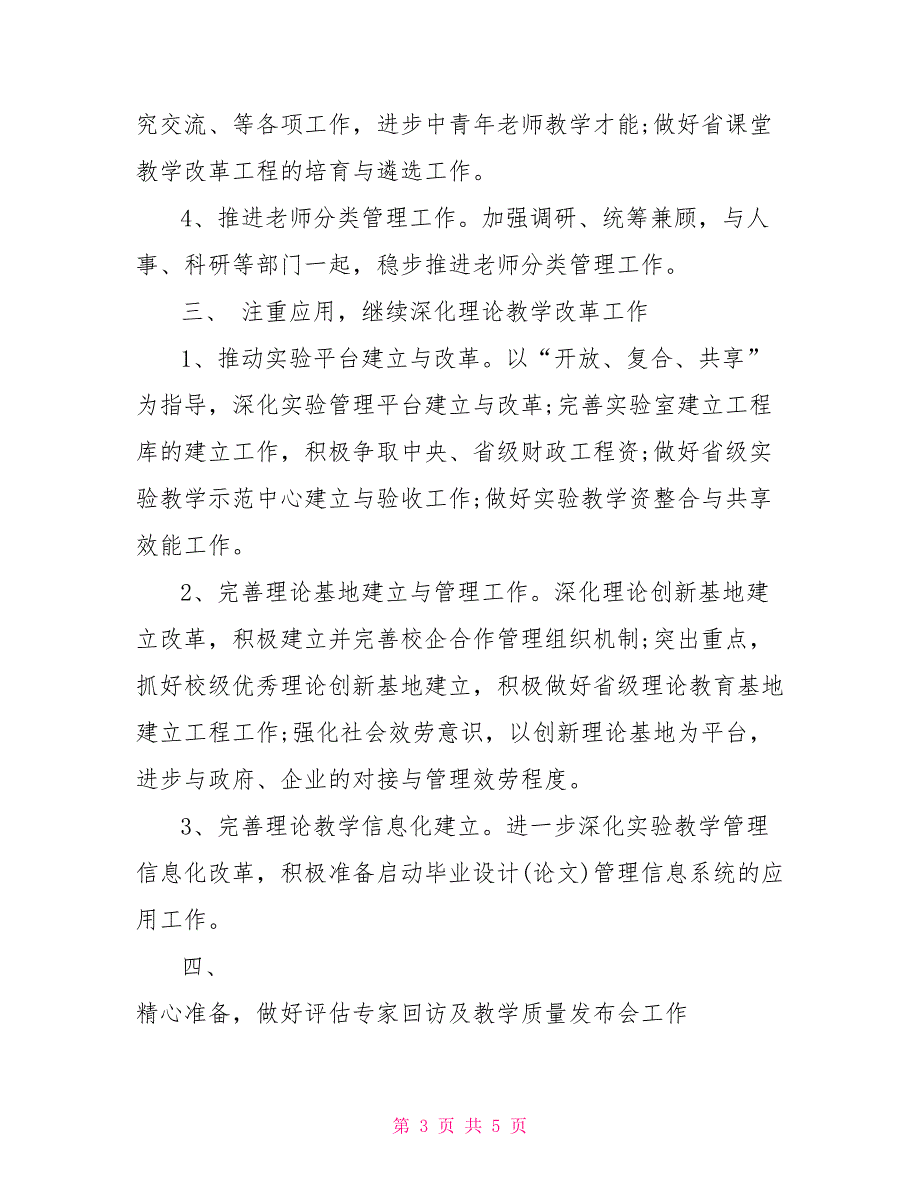 究交流、等各项工作，进步中青年老师教学才能;做好省课堂
教学改革工程的培育与遴选工作。
4、推进老师分类管理工作。加强调研、统筹兼顾，与人
事、科研等部门一起，稳步推进老师分类管理工作。
三、 注重应用，继续深化理论教学改革工作
1、推动实验平台建立与改革。以“开放、复合、共享”
为指导，深化实验管理平台建立与改革;完善实验室建立工程
库的建立工作，积极争取中央、省级财政工程资;做好省级实
验教学示范中心建立与验收工作;做好实验教学资整合与共享
效能工作。
2、完善理论基地建立与管理工作。深化理论创新基地建
立改革，积极建立并完善校企合作管理组织机制;突出重点，
抓好校级优秀理论创新基地建立，积极做好省级理论教育基地
建立工程工作;强化社会效劳意识，以创新理论基地为平台，
进步与政府、企业的对接与管理效劳程度。
3、完善理论教学信息化建立。进一步深化实验教学管理
信息化改革，积极准备启动毕业设计(论文)管理信息系统的应
用工作。
四、
精心准备，做好评估专家回访及教学质量发布会工作
第 3 页 共 5 页